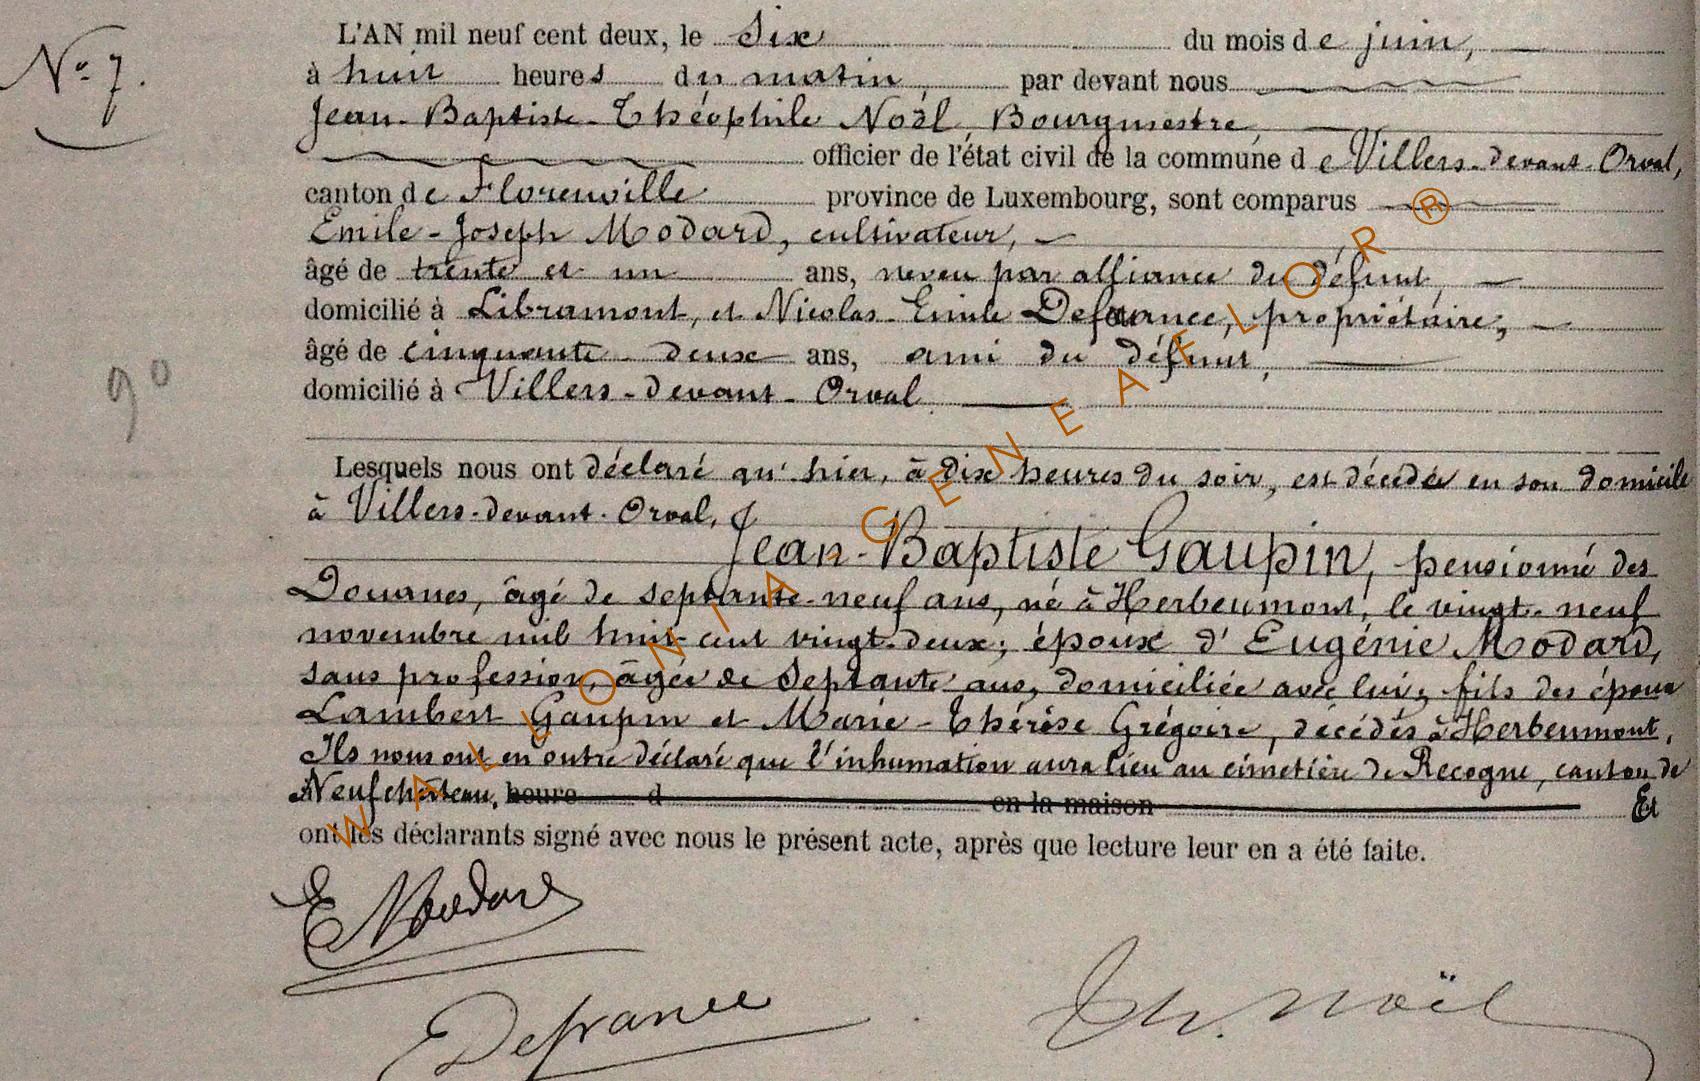 N° 7.
L'AN mil neuf cent deux, le Six du mois de juin,
à huit heures du matin, par devant nous
Jean-Baptiste-Théophile Noël, Bourgmestre,
officier de l'état civil de la commune de Villers-devant-Orval,
canton de Florenville province de Luxembourg, sont comparus
Emile-Joseph Modard, cultivateur,
âgé de trente et un ans, neveu par alliance du défunt,
domicilié à Libramont, et Nicolas-Emile Defrance, propriétaire,
âgé de cinquante-deux ans, ami du défunt,
domicilié à Villers-devant-Orval.
9°
Lesquels nous ont déclaré qu'hier, à dix heures du soir, est décédé en son domicile
à Villers-devant-Orval,
Jean-Baptiste Gaupin, pensionné des
Douanes, âgé de septante-neuf ans, né à Herbeumont, le vingt-neuf
novembre mil huit cent vingt-deux; époux d'Eugénie Modard,
sans profession, âgée de Septante ans, domiciliée avec lui; fils des époux
Lambert Gaupin et Marie-Thérèse Grégoire, décédés à Herbeumont.
Ils nous ont en outre déclaré que l'inhumation aura lieu au cimetière de Recogne, canton de
Neufchâteau. heure d en la maison Et
ont les déclarants signé avec nous le présent acte, après que lecture leur en a été faite.
E Modard
Defrance
Th. Noël
WALLONIA - GENEAFLOR ®